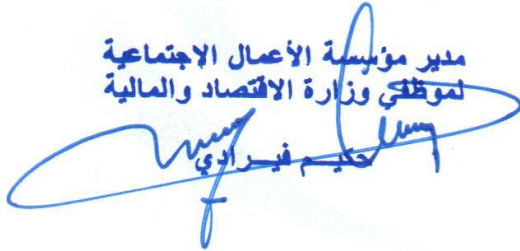 مدير مؤسسة الأعمال الاجتماعية
لموظفي وزارة الاقتصاد والمالية
حكيم فيرادي